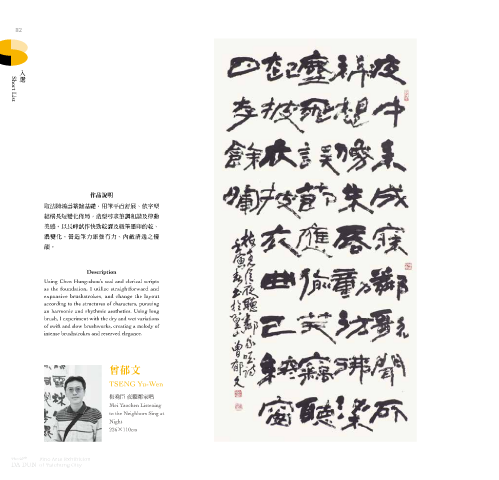 82
入選
Short List
作品說明
取法陳鴻壽篆隸基礎，用筆平直舒展、依字型
結構長短變化佈局，造型尋求筆調和諧及律動
美感。以長峰試作快
濃變化、營造筆力
Description
Using Chen Hungshou's seal and clerical scripts
as the foundation, I utilize straightforward and
expansive brushstrokes, and change the layout
according to the structures of characters, pursuing
an harmonic and rhythmic aesthetics. Using long
brush, I experiment with the dry and wet variations
of swift and slow brushworks, creating a melody of
intense brushstrokes and reserved elegance.
曾郁文
TSENG Yu-Wen
梅堯臣 夜聽鄰家唱
Mei Yaochen Listening
to the Neighbors Sing at
Night
226×110cm
夜中未成寐鄰歌聞所
稀想朱唇動仿佛梁
塵飛誤節應偷笑竊聽
起披衣披衣曲已終窗
月存餘
梅堯臣夜聽鄰家唱詩
壬寅曾郁文